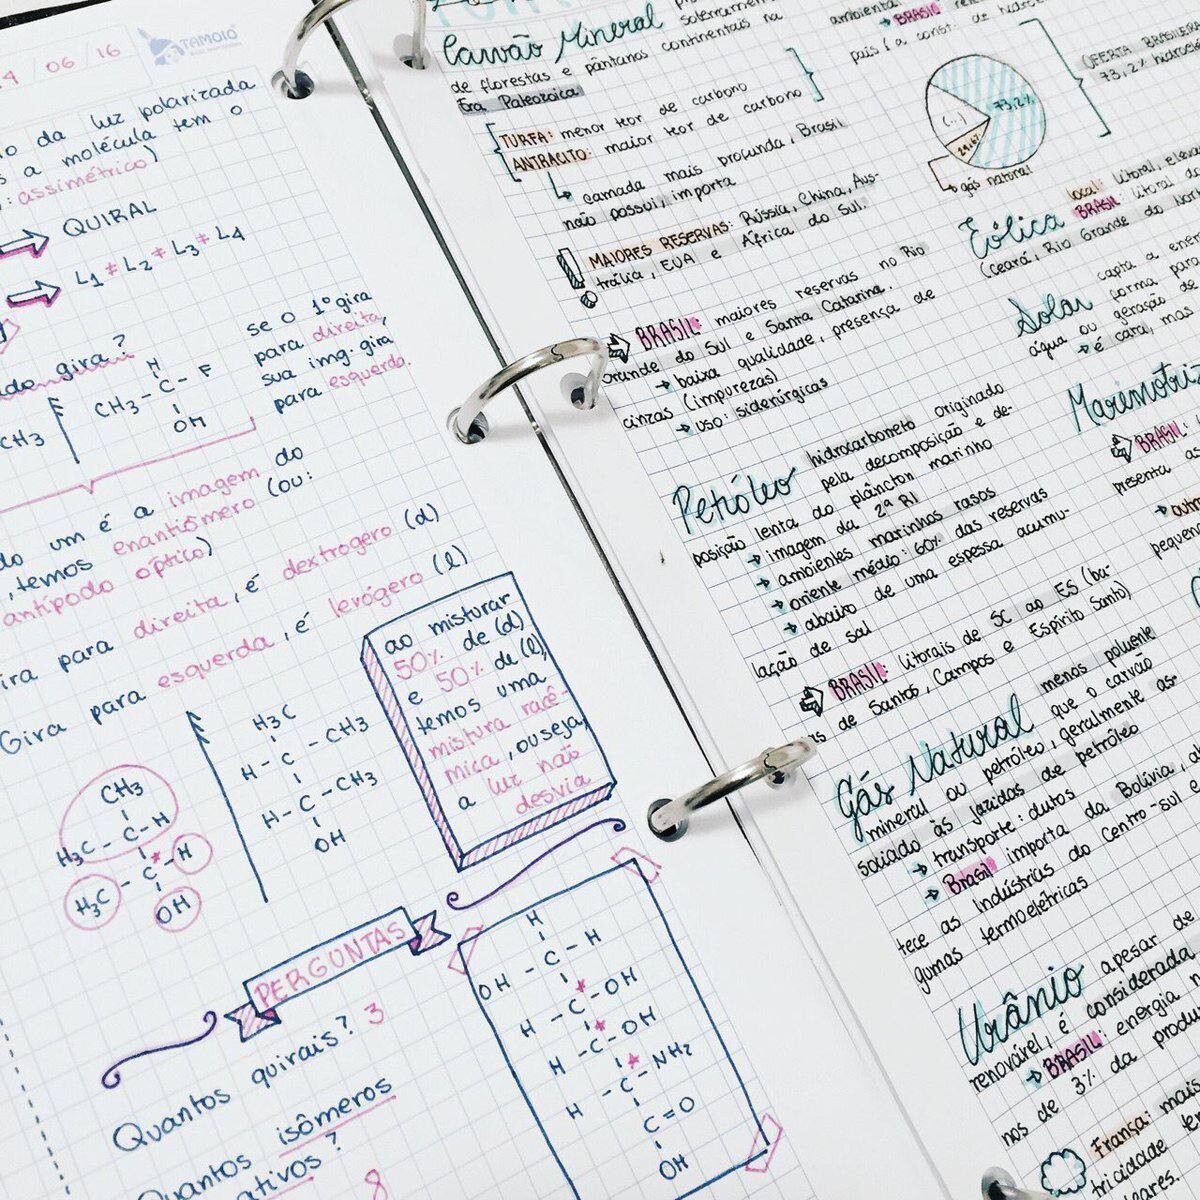 / 06 / 16
TAMOIO
da luz polarizada
a molécula tem o
: assimétrico)
QUIRAL
L1 ≠ L2 ≠ L3 ≠ L4
gira?
se o 1º gira
para direita,
sua img. gira
para esquerda.
H
CH3 - C - F
OH
CH3
um é a imagem do
, temos enantiômero (ou:
antípodo óptico)
ira para direita, é dextrogero (d)
Gira para esquerda, é levógero (l)
ao misturar
50% de (d)
e 50% de (l),
temos uma
mistura racê-
mica, ou seja,
a luz não
desvia
CH3
H3C - C - H
H3C - C - H
OH
H3C
H - C - CH3
H - C - CH3
OH
PERGUNTAS
Quantos quirais? 3
isômeros
ativos?
8
H
OH - C - H
H - C - OH
H - C - OH
H - C - NH2
C = O
OH
Carvão Mineral
solerramen
de florestas e pântanos continentais na
Era Paleozoica
TURFA: menor teor de carbono
ANTRACITO: maior teor de carbono
camada mais profunda, Brasil
não possui, importa
MAIORES RESERVAS: Rússia, China, Aus-
trália, EUA e África do Sul.
BRASIL: maiores reservas no Rio
Grande do Sul e Santa Catarina.
baixa qualidade, presença de
cinzas (impurezas)
uso: siderúrgicas
Petróleo hidrocarboneto originado
pela decomposição e de-
posição lenta do plâncton marinho
imagem da 2ª RI
ambientes marinhos rasos
oriente médio: 60% das reservas
abaixo de uma espessa acumu-
lação de sal
BRASIL: litorais de SC ao ES (ba-
s de Santos, Campos e Espírito Santo)
Gás Natural menos poluente
que o carvão
mineral ou petróleo, geralmente as-
sociado às jazidas de petróleo
transporte: dutos
Brasil importa da Bolívia, a
tece as indústrias do Centro-sul e
gumas termoelétricas
Urânio apesar de
renovável, é considerada
BRASIL: energia
nos de 3% da produ
França: mais
tricidade
ambienta.
BRASIL
país é a
73,2%
(...)
gás natural
OFERTA BRASILEIRA
73,2%
Eólica
local: litoral,
BRASIL litoral do
(Ceará, Rio Grande do Nor
Solar capta a ener
forma para
água ou geração de
é cara, mas
Maremotriz
BRASIL:
presenta as
pequen